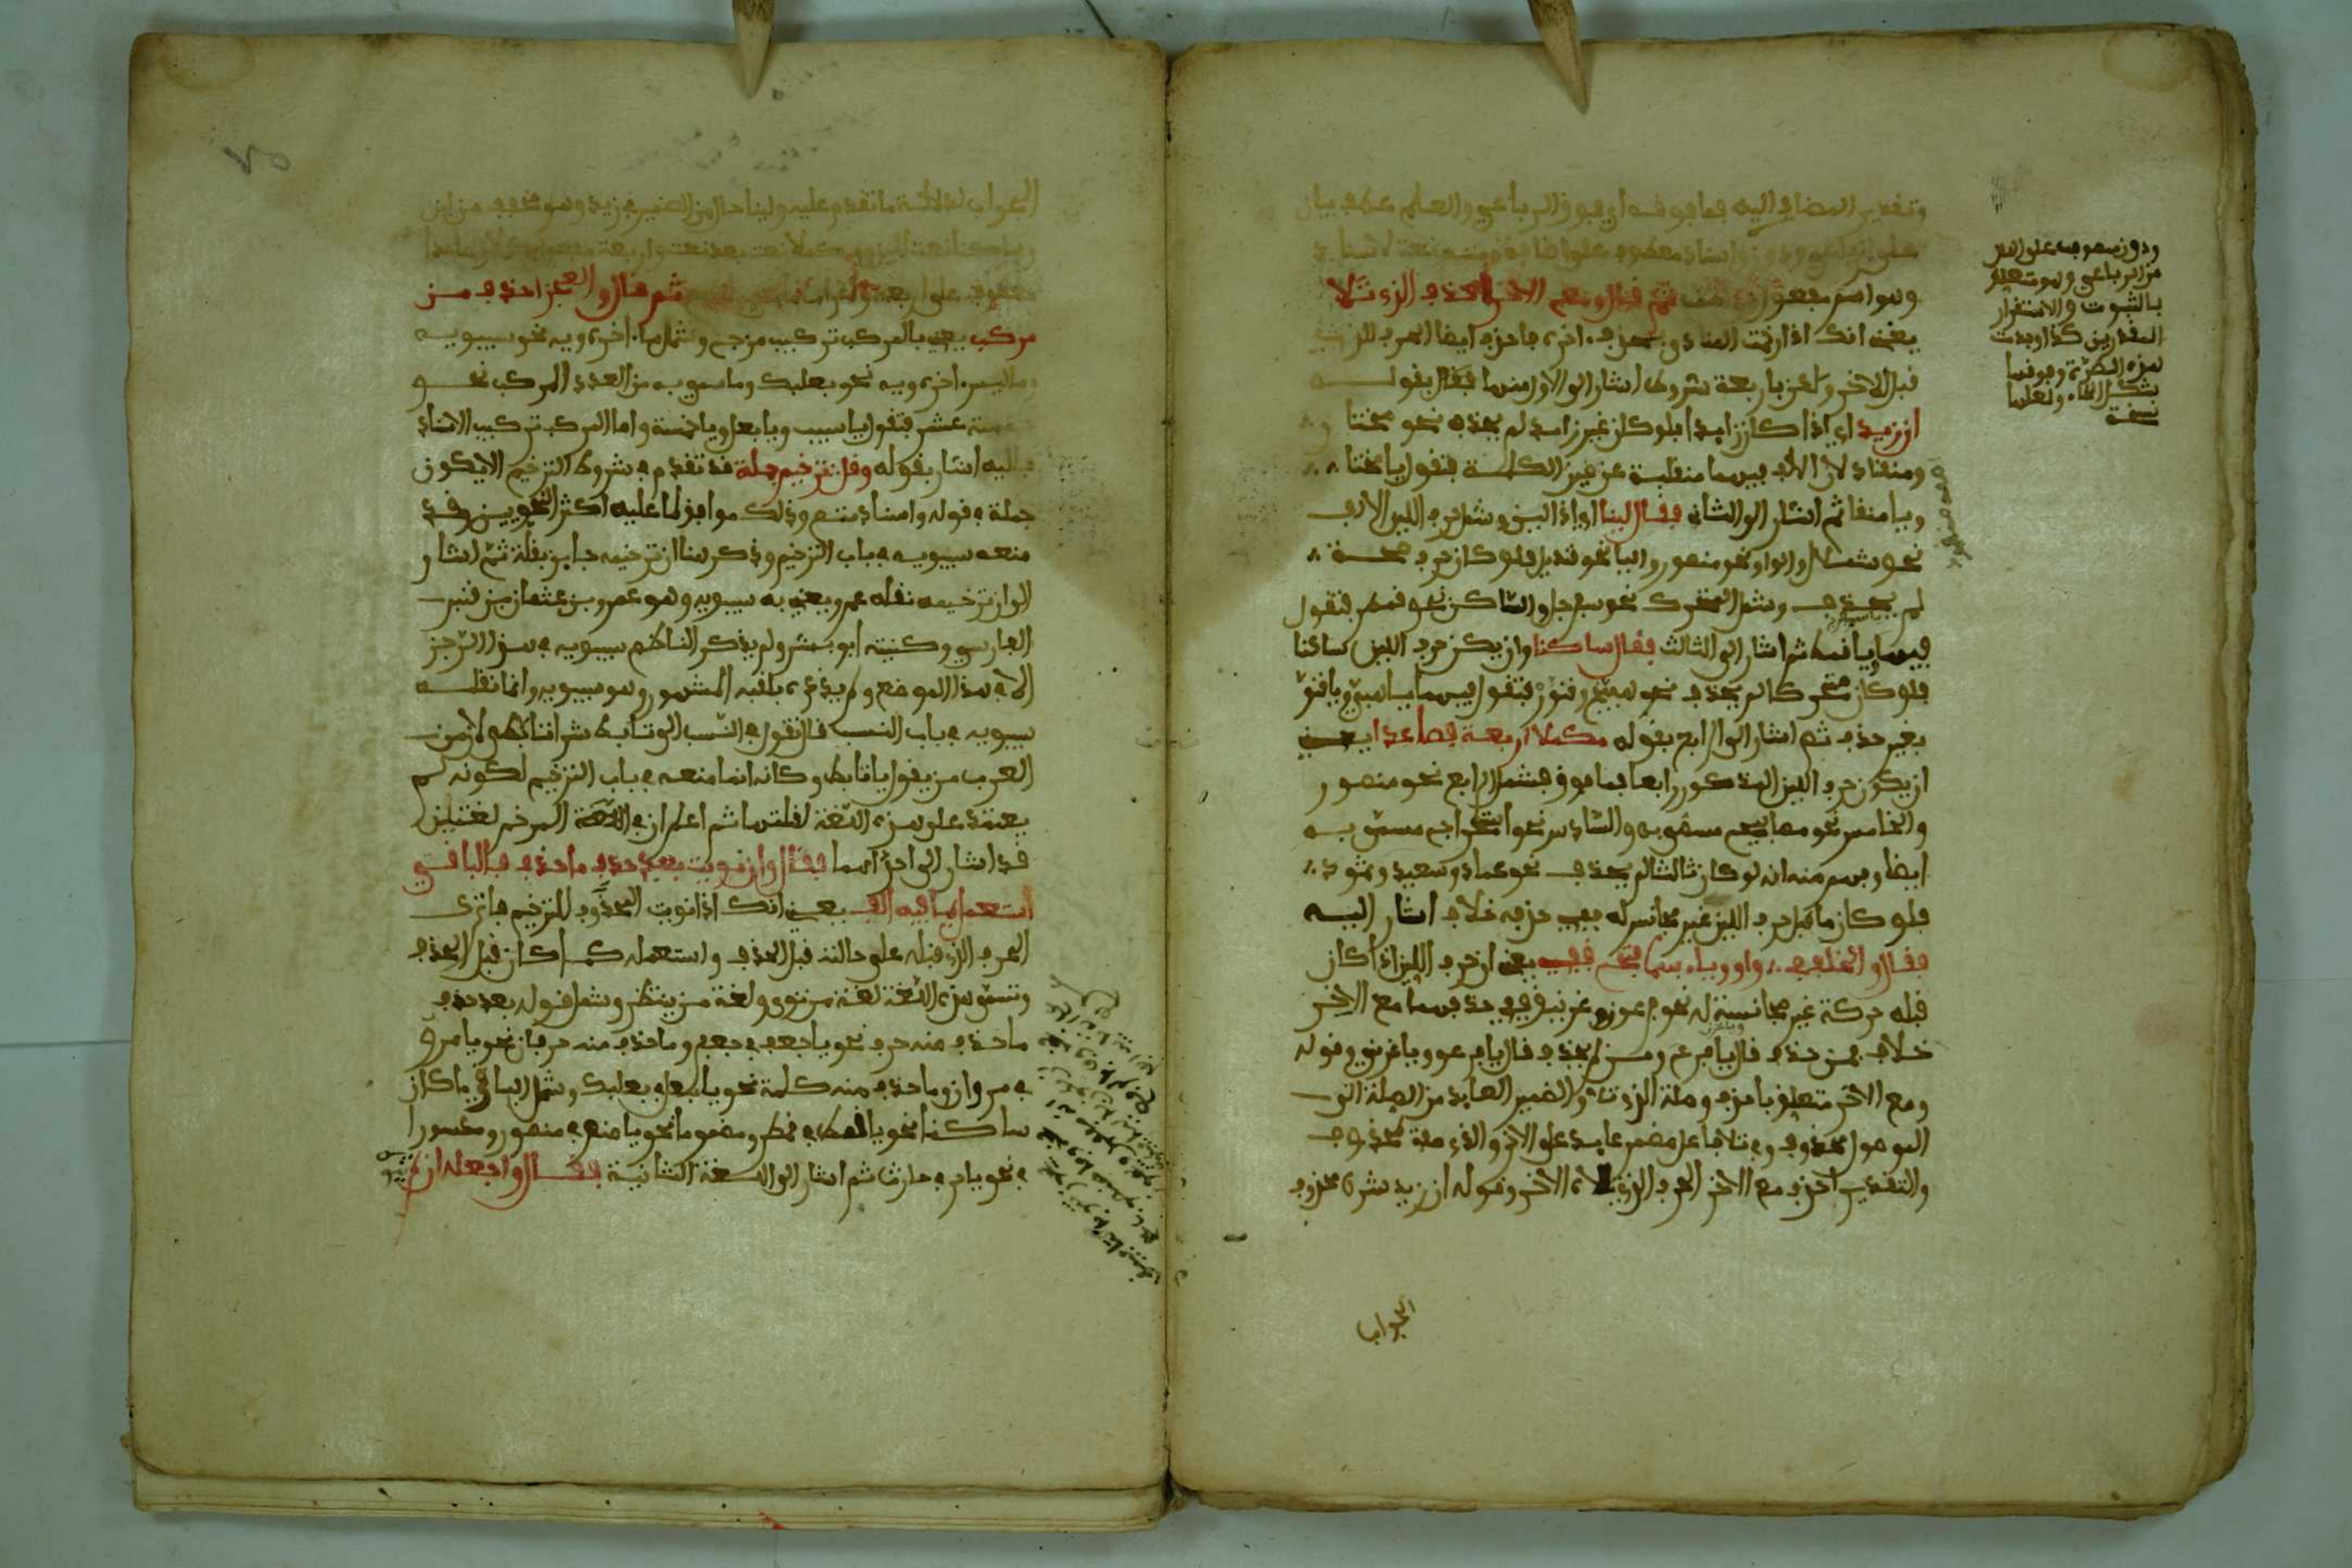 وتقدير المضاف إليه فما فوقه أي فوق الرباعي والعلم عطف بيان
على الرباعي ودون وإسناد معطوف على إضافة ومتم نعت لإسناد
وهو اسم مفعول من ثم قال ومع الآخر احذف الذي تلا
يعني أنك إذا رخمت المنادى بحذف آخره فاحذف أيضا الحرف الذي
قبل الآخر ولكن بأربعة شروط أشار إلى الأول منها فقال بقوله
إن زيد أي إذا كان زايدا فلو كان غير زايد لم يحذف نحو مختار
ومنقاد لأن الألف فيهما منقلبة عن عين الكلمة فتقول يا مختا
ويا منقا ثم أشار إلى الثاني فقال لينا أي إذا لين وشمل حرف اللين الألف
نحو شملال والواو نحو منصور واليا نحو قنديل فلو كان حرف صحة
لم يحذف وشمل المتحرك نحو سفرجل والساكن نحو قمطر فتقول
فيهما ويا قمط ثم أشار إلى الثالث فقال ساكنا وإن يكن حرف اللين ساكنا
فلو كان متحركا لم يحذف نحو هبيّخ وقنوّر فتقول فيهما يا هبيّ ويا قنوّ
بغير حذف ثم أشار إلى الرابع بقوله مكملا أربعة فصاعدا يعني
أن يكون حرف اللين المذكور رابعا فما فوق فشمل الرابع نحو منصور
والخامس نحو مصابيح مسمّى به والسادس نحو استخراج مسمّى به
أيضا وفهم منه أنه لو كان ثالثا لم يحذف نحو عماد وسعيد وثمود
فلو كان ما قبل حرف اللين غير مجانس له ففي حذفه خلاف أشار إليه
فقال والخلف في واو وياء بهما فتح قفي يعني أن حرف اللين إذا كان
قبله حركة غير مجانسة له نحو فرعون وغرنيق ففي حذفهما مع الآخر
خلاف فمن حذف قال يا فرع ومن لم يحذف قال يا فرعو ويا غرني وقوله
ومع الآخر متعلق باحذف وصلة الذي تلا والضمير العايد من الصلة إلى
الموصول محذوف وفي تلا فاعل مضمر عايد على الآخر والذي صفة لمحذوف
والتقدير احذف مع الآخر الحرف الذي تلاه الآخر وقوله إن زيد شرط محذوف
الجواب
ودون معطوف على
من الرباعي وهو متعلق
بالثبوت والاستقرار
المقدرين كذا وجدت
هذه الطرة وفوقها
شكل الطاء ولعلها
نسخة
الجواب لدلالة ما تقدم عليه ولينا حال من الضمير في زيد وهو مخفف من لين
وساكنا نعت لين ومكملا نعت بعد نعت وأربعة مفعول بمكملا
معطوف على أربعة ثم قال والعجز احذف من
مركب يعني بالمركب تركيب مزج وشمل ما آخره ويه نحو سيبويه
وما ليس آخره ويه نحو بعلبك وما سمي به من العدد المركب نحو
خمسة عشر فتقول يا سيب ويا بعل ويا خمسة وأما المركب تركيب الإسناد
فإليه أشار بقوله وقل ترخيم جملة قد تقدم في شروط الترخيم ألا يكون
جملة في قوله وإسناد متم وذلك موافق لما عليه أكثر النحويين وقد
منعه سيبويه في باب الترخيم وذكر هنا أن ترخيمه جايز بقلة ثم أشار
إلى أن ترخيمه نقله عمرو يعني به سيبويه وهو عمرو بن عثمان بن قنبر
الفارسي وكنيته أبو بشر ولم يذكر الناظم سيبويه في هذا الرجز
إلا في هذا الموضع ولم يذكره بلقبه المشهور وهو سيبويه وإنما نقله
سيبويه في باب النسب قال تقول في النسب إلى تأبط شرا تأبطي لأن من
العرب من يقول يا تأبط وكأنه إنما منعه في باب الترخيم لكونه لم
يعتمد على هذه اللغة لقلتها ثم اعلم أن في المرخم لغتين
قد أشار إلى إحداهما فقال وإن نويت بعد حذف ما حذف فالباقي
استعمل بما فيه ألف يعني أنك إذا نويت المحذوف للترخيم فاترك
الحرف الذي قبله على حالته قبل الحذف واستعمله كما كان قبل الحذف
وتسمى هذه اللغة لغة من نوى ولغة من ينتظر وشمل قوله بعد حذف
ما حذف منه حرف نحو يا جعف في جعفر وما حذف منه حرفان نحو يا مرو
في مروان وما حذف منه كلمة نحو يا بعل في بعلبك وشمل الباقي ما كان
ساكنا نحو يا قمط في قمطر ومضموما نحو يا منص في منصور ومكسورا
في نحو يا حار في حارث ثم أشار إلى اللغة الثانية فقال واجعله إن